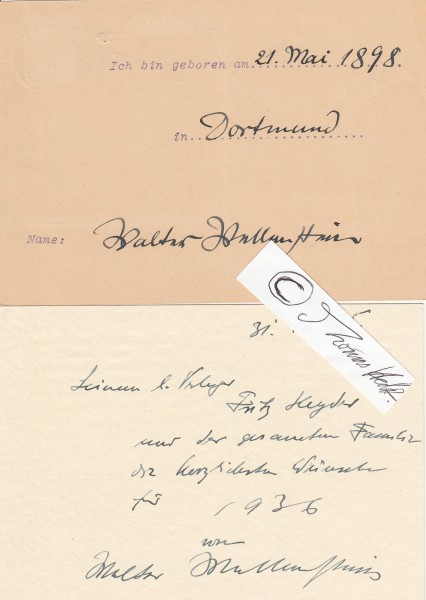 Ich bin geboren am 21. Mai 1898.
in Dortmund
Name: Walter Wellenstein
© Thomas
31.
Seinem l. Verleger
Fritz Heyder
und der gesamten Familie
die herzlichsten Wünsche
für 1936
von
Walter Wellenstein